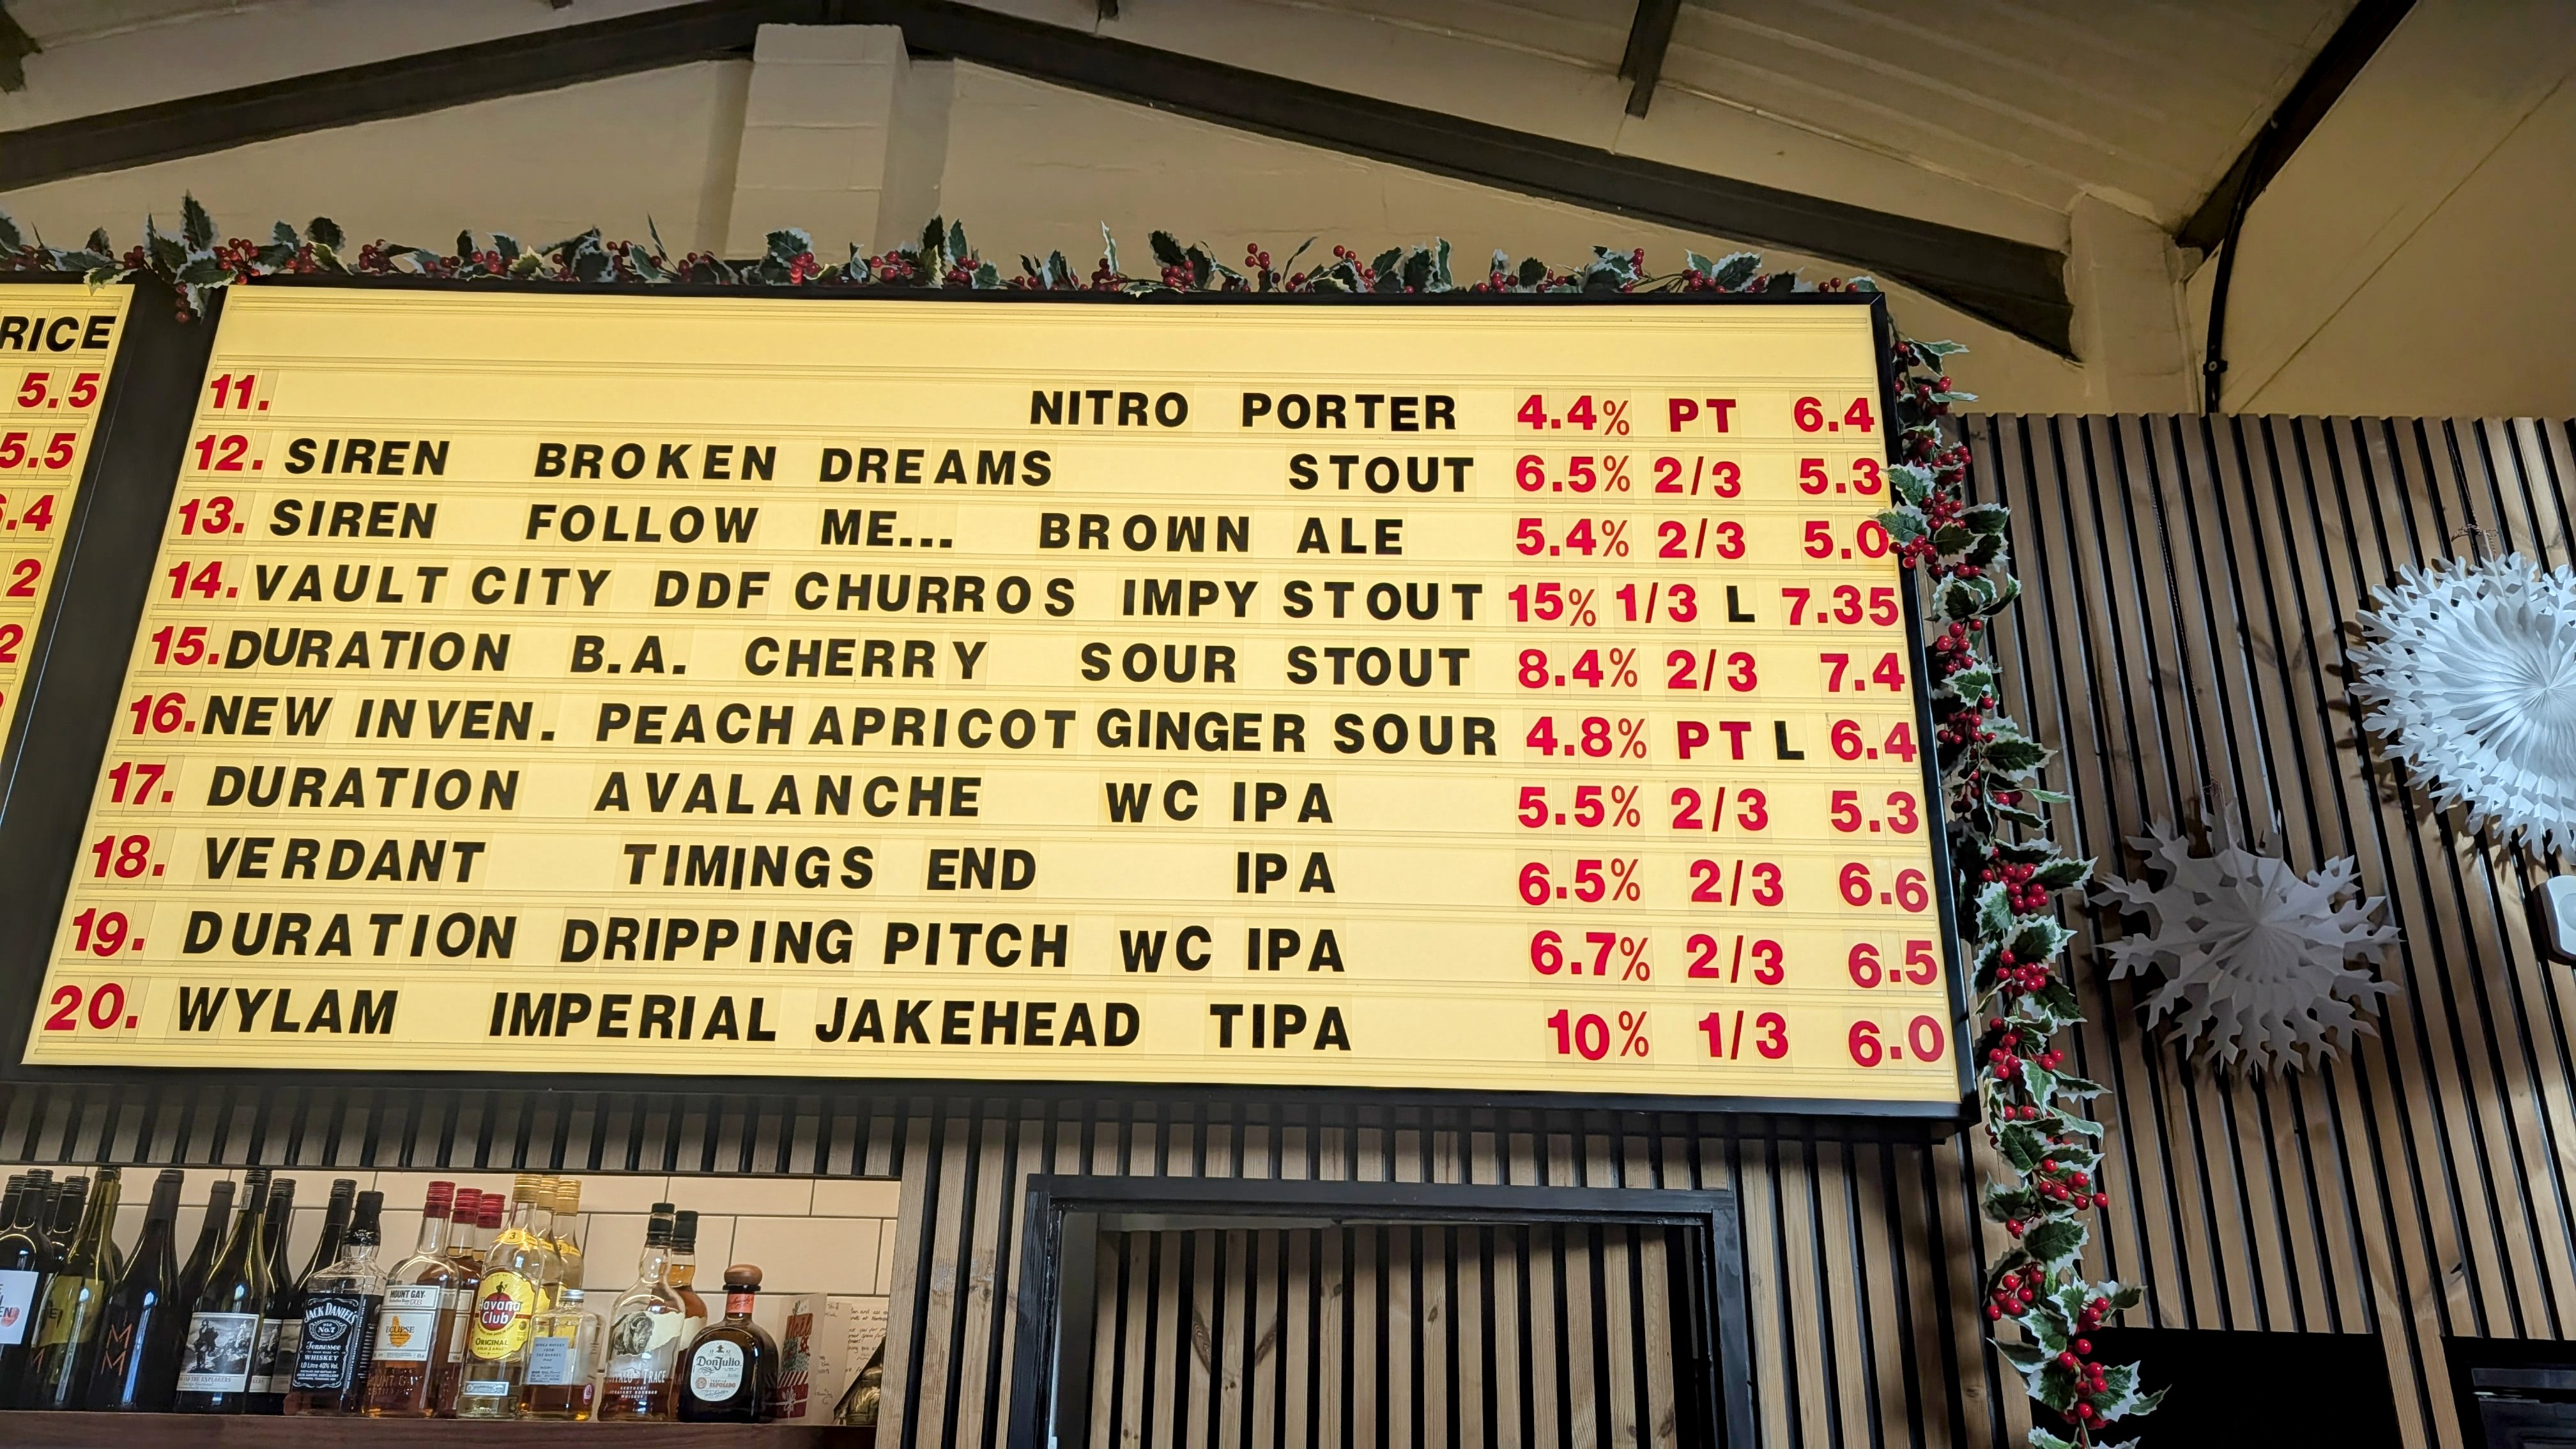 RICE
5.5
5.5
.4
2
2
11. NITRO PORTER 4.4% PT 6.4
12. SIREN BROKEN DREAMS STOUT 6.5% 2/3 5.3
13. SIREN FOLLOW ME... BROWN ALE 5.4% 2/3 5.0
14. VAULT CITY DDF CHURROS IMPY STOUT 15% 1/3 L 7.35
15. DURATION B.A. CHERRY SOUR STOUT 8.4% 2/3 7.4
16. NEW INVEN. PEACH APRICOT GINGER SOUR 4.8% PT L 6.4
17. DURATION AVALANCHE WC IPA 5.5% 2/3 5.3
18. VERDANT TIMINGS END IPA 6.5% 2/3 6.6
19. DURATION DRIPPING PITCH WC IPA 6.7% 2/3 6.5
20. WYLAM IMPERIAL JAKEHEAD TIPA 10% 1/3 6.0
JACK DANIEL'S
OLD
No.7
Tennessee
WHISKEY
MOUNT GAY
ECLIPSE
Havana
Club
ORIGINAL
TRACE
Don Julio
REPOSADO